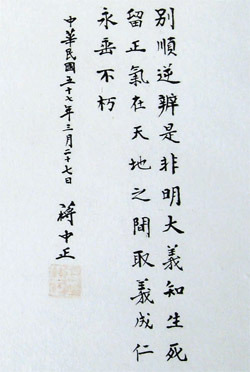 別順逆辨是非明大義知生死
留正氣在天地之間取義成仁
永垂不朽
中華民國五十七年三月二十七日
蔣中正